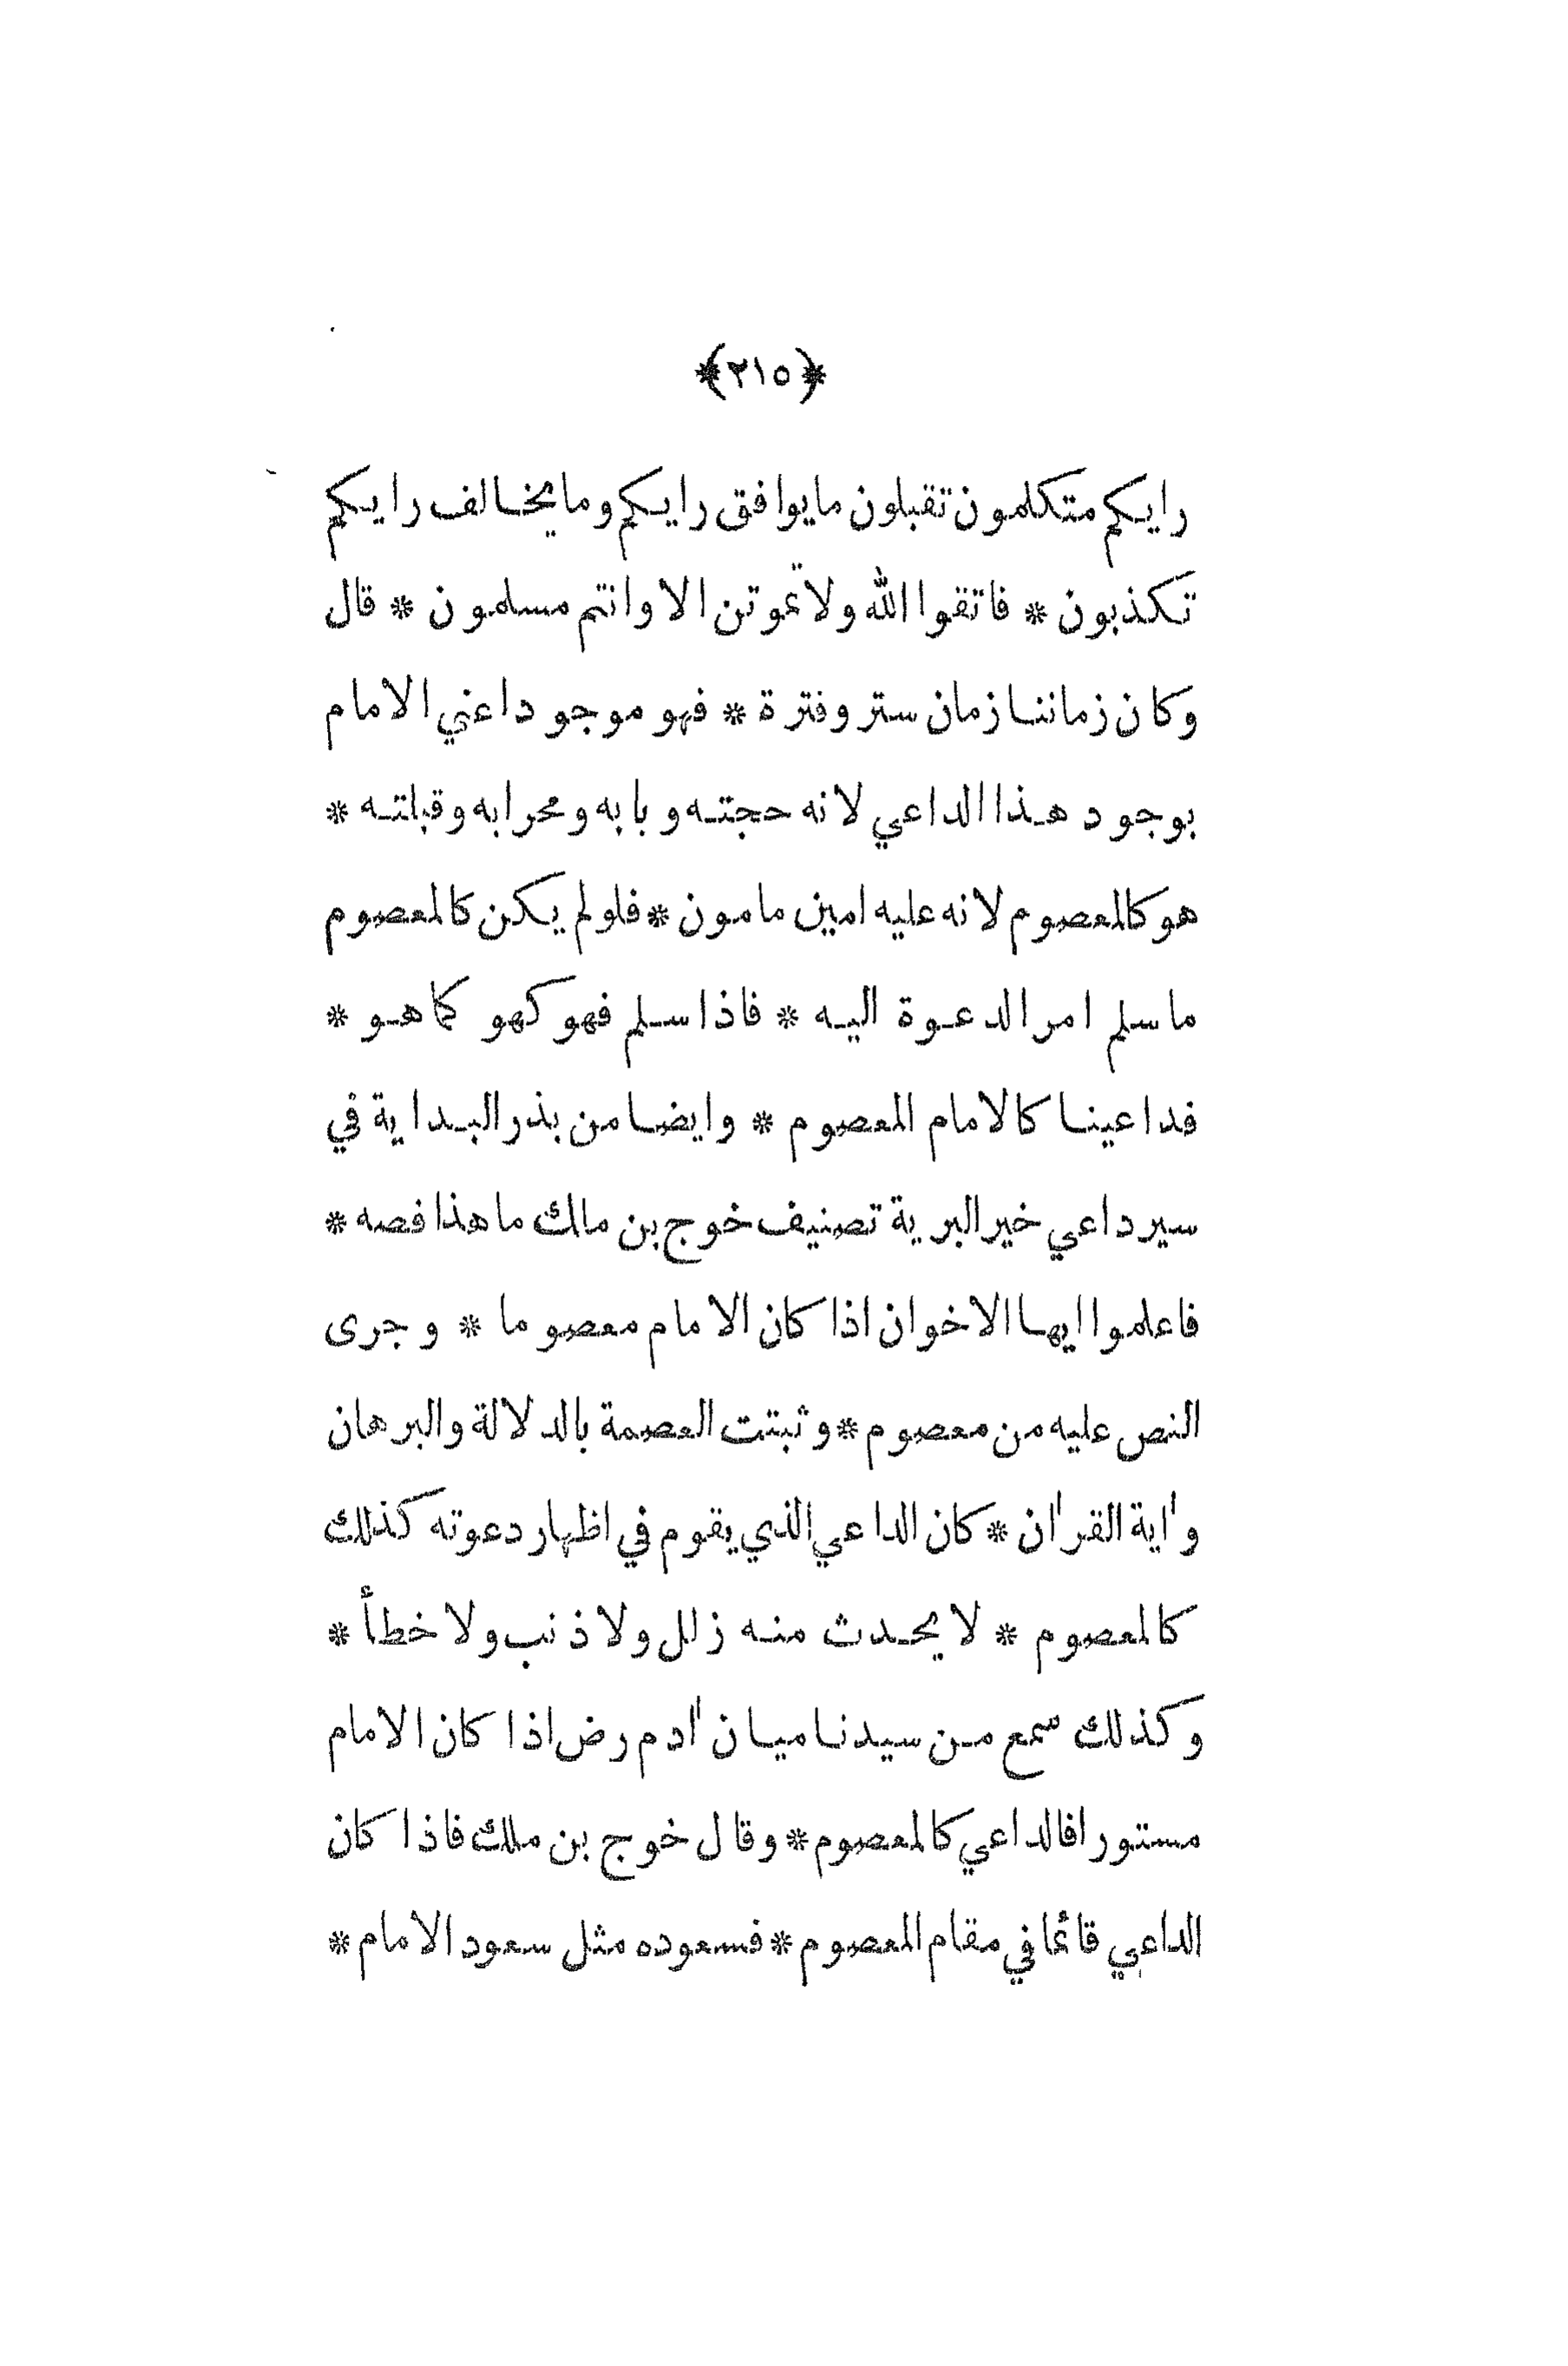 ﴿٢١٥﴾
رايكم متكلمون تقبلون مايوافق رايكم ومايخالف رايكم
تكذبون * فاتقوا الله ولاتموتن الا وانتم مسلمون * قال
وكان زماننا زمان ستر وفترة * فهو موجود اعني الامام
بوجود هذا الداعي لانه حجته وبابه ومحرابه وقبلته *
هو كالمعصوم لانه عليه امين مامون * فلو لم يكن كالمعصوم
ما سلم امر الدعوة اليه * فاذا سلم فهو كهو كما هو *
فداعينا كالامام المعصوم * وايضا من بذر البداية في
سير داعي خير البرية تصنيف خوج بن مالك ما هذا فصه *
فاعلموا ايها الاخوان اذا كان الامام معصوما * وجرى
النص عليه من معصوم * وثبتت العصمة بالدلالة والبرهان
واٰية القراٰن * كان الداعي الذي يقوم في اظهار دعوته كذلك
كالمعصوم * لا يحدث منه زلل ولا ذنب ولا خطأ *
وكذلك سمع من سيدنا ميان اٰدم رض اذا كان الامام
مستورا فالداعي كالمعصوم * وقال خوج بن ملك فاذا كان
الداعي قائما في مقام المعصوم * فسعوده مثل سعود الامام *